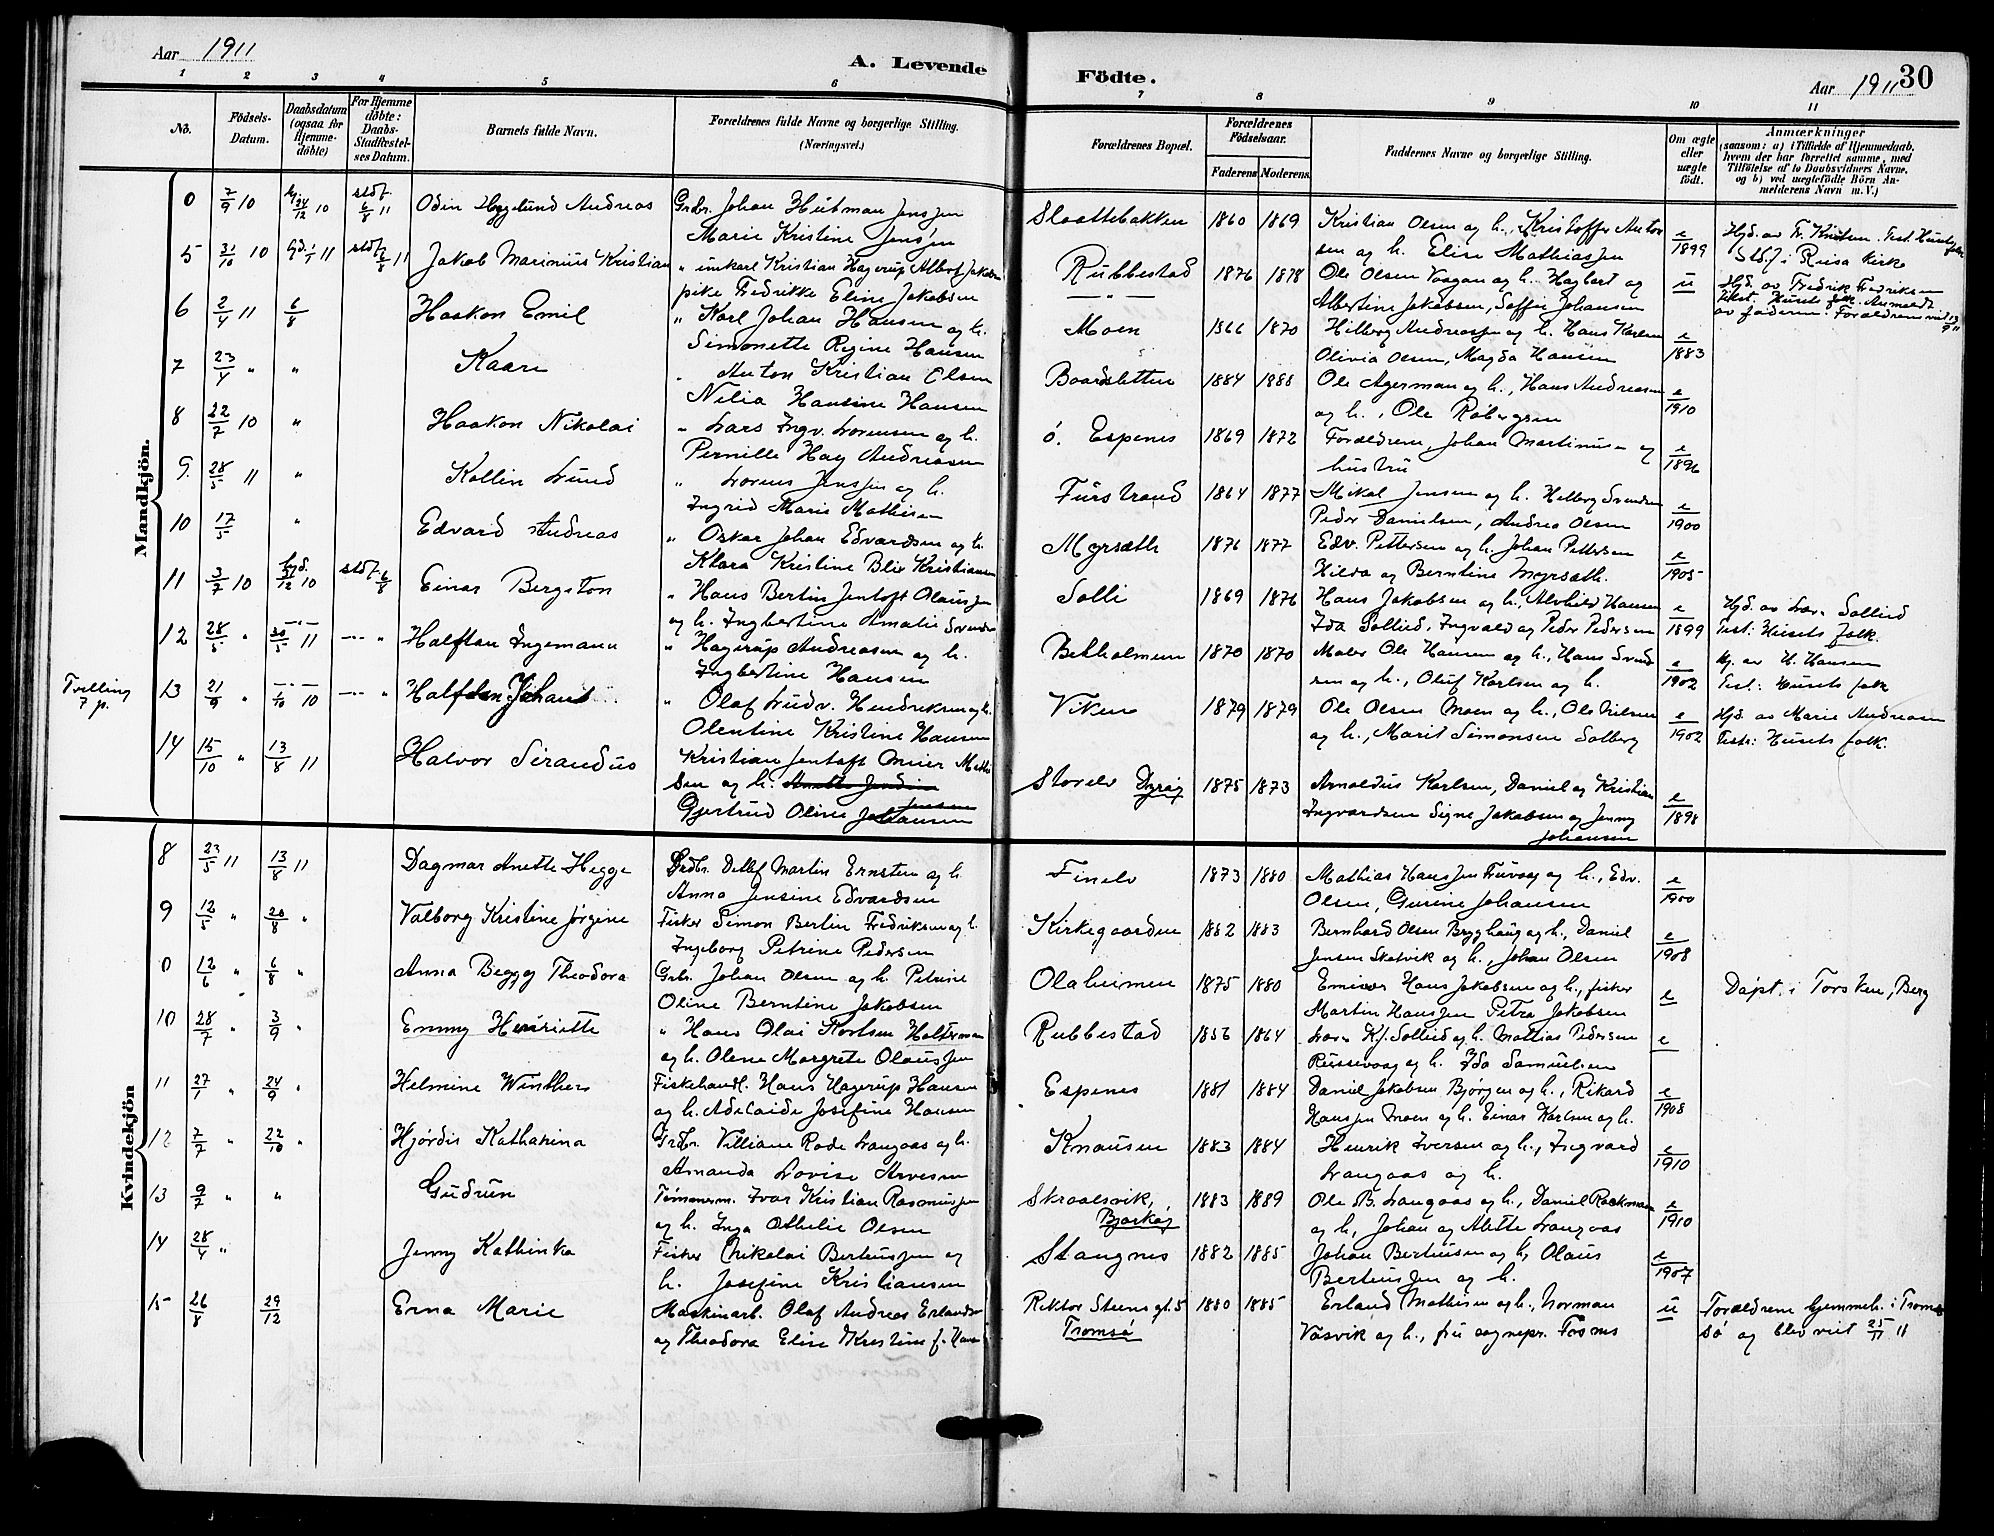 Aar 1911
A. Levende
Födte.
Aar 1911
30
1 2 3 4 5 6 7 8 9 10 11
No.
Födsels-
Datum.
Daabsdatum
(ogsaa for
Hjemme-
döbte)
For Hjemme
döbte:
Daabs-
Stadfæstel-
ses Datum.
Barnets fulde Navn.
Forældrenes fulde Navne og borgerlige Stilling.
(Næringsvei.)
Forældrenes Bopæl.
Forældrenes
Födselsaar.
Faderens Moderens
Faddernes Navne og borgerlige Stilling.
Om ægte
eller
uægte
födt.
Anmærkninger
(saasom: a) i Tilfælde af Hjemmedaab,
hvem der har forrettet samme, med
Tilföielse af to Daabsvidners Navne,
og b) ved uægtefödte Börn An-
melderens Navn m. V.)
Mandkjön.
0 7/9 10 24/12 10 stdf. 6/8 11 Odin Andreas Grdbr. Johan Hutman Jenssen
Marie Kristine Jensen
Slaattebakken 1860 1869 Kristian Olsen og h., Kristoffer Anton
sen og h. Elise Mathiassen
e/1899
Stdf. i Reisa Kirke
5 31/10 10 11 stdf. 6/8 11 Jakob Marinius Kristian " unkarl Kristian Hagerup Albert Jakobsen
pike Fredrikke Eline Jakobsen
Rubbestad 1876 1878 Ole Olsen Vaagan og h. Hagbart og
Albertine Jakobsen, Soffie Johansen
u
Hjd. av Fredrik Fredriksen
Test. Husets folk. Anmeldt
av faderen. Forældrene viet
6 2/4 11 6/8 Haakon Emil " Karl Johan Hansen og h.
Simonette Regine Hansen
Moen 1866 1870 Hilberg Andreassen og h. Hans Karlsen
Olivia Olsen, Magda Hansen
e/1883
7 23/4 " " Kaare " Anton Kristian Olsen
Nilia Hansine Hansen
Baardsletten 1884 1888 Ole Agerman og h., Hans Andreasen
og h., Ole Robergsen
e/1910
8 22/7 10 " Haakon Nikolai " Lars Ingv. Lorensen og h.
Pernille Hay Andreasen
ö. Espenes 1869 1872 Forældrene, Johan Martinusen og
hustru
e/1896
9. 28/5 11 " Kollin Lund " Lorens Jenssen og h.
Ingrid Marie Mathisen
Furstrand 1864 1877 Mikal Jensen og h. Helberg Svendsen
Peder Danielsen, Andrea Olsen
e/1900
10 17/5 " Edvard Andreas " Oskar Johan Edvardsen og h.
Klara Kristine Blix Kristiansen
Myrsæth 1876 1877 Edv. Pettersen og h. Johan Pettersen
Hilda og Berntine Myrsæth.
e/1905
11 3/7 10 hjd. 31/12 10 stdf. 6/8 Einar Bergston " Hans Bertin Jentoft Olaussen
og h. Ingbertine Amalie Svendsen
Solli 1869 1876 Hans Jakobsen og h., Alvhild Hansen
Ida Sollied, Ingvald og Peder Pedersen
e/1899
Hjd. av Lær. Sollied
Test: Husets folk.
12 28/5 " 30/5 11 — " Halfdan Ingemann " Hagerup Andreasen og h.
Ingbertine Hansen
Bekholmen 1870 1870 Maler Ole Hansen og h., Hans Svend
sen og h., Oluf Karlsen og h.
e/1902
Hj. av H. Hansen
Test: Husets folk
Tvilling
7 p.
13 21/9 " 1/10 10 — " Halfdan Johans " Olaf Ludv. Hendriksen og h.
Olentine Kristine Hansen
Viken 1879 1879 Ole Olsen Moen og h., Ole Nilsen
og h., Marit Simonsen Solberg
e/1902
Hjd. av Marie Andreasen
Testr: Husets folk.
14 15/10 " 13/8 11 Halvor Sirandus Kristian Jentoft Meier Mathi
sen og h. Anette Jendine
Jensen
Gjertrud Oline Johansen
Storelv Dyröy 1875 1873 Arnoldus Karlsen, Daniel og Kristian
Ingvardsen Signe Jakobsen og Jenny
Johansen
e/1898
Kvindekjön
8 23/5 11 13/8 11 Dagmar Anette Hegge Grdbr. Detlef Martin Ernsten og h.
Anna Jensine Edvardsen
Finelv 1873 1880 Mathias Hanssen Furvaag og h., Edv.
Olsen, Gurine Johansen
e/1900
9 12/5 " 20/8 " Valborg Kristine Jørgine Fisker Simon Bertin Fredriksen og h.
Ingeborg Petrine Pedersen
Kirkegaarden 1882 1883 Bernhard Olsen Brygghaug og h., Daniel
Jensen Skatvik og h., Johan Olsen
e/1908
0 12/6 " 6/8 " Anna Beggy Theodora Grbr. Johan Olsen og h. Petrine
Oline Berntine Jakobsen
Olaheimen 1875 1880 Emisær Hans Jakobsen og h., fisker
Martin Hanssen Petra Jakobsen
e
Døpt i Torsken, Berg
10 28/7 " 3/9 " Emmy Henriette " Hans Olai Kortsen Holterman
og h. Olene Margrete Olaussen
Rubbestad 1856 1864 Lærer Kf. Sollied og h. Mathias Pedersen
Russevaag og h. Ida Samuelsen
e
11 27/1 " 24/9 " Helmine Winthers Fiskehandl. Hans Hagerup Hansen
og h. Adelaide Josefine Hansen
Espenes 1881 1884 Daniel Jakobsen Bjørgen og h., Rikard
Hanssen Moen og h. Einar Karlsen og h.
e/1908
12 7/7 " 22/10 " Hjørdis Katharina Grdbr. Villiam Rode Langaas og h.
Amanda Lovise Arvesen
Knausen 1883 1884 Henrik Iversen og h., Ingvard
Langaas og h.
e/1910
13 9/7 " " Gudrun Tømmerm. Ivar Kristian Rasmussen
og h. Inga Othelie Olsen
Skroalsvik, Bjarkøy 1883 1889 Ole B. Langaas og h., Daniel Rackman
og h., Johan og Alette Langaas
e/1910
14 28/4 " Jenny Kathinka Fisker Nikolai Bertiussen og
h. Josefine Kristiansen
Stangnes 1882 1885 Johan Bertiusen og h, Olaus
Bertiussen og h.
e/1907
15 26/8 29/12 Erna Marie Maskinarb. Olaf Andreas Erlands
og Theodora Elise Kristine f. Han
Rektor Steens gt. 5
Tromsø 1880 1885 Erland Mathisen og h., Norman
Vasvik og h., fru sognepr. Fosnes
u
Forældrene hjemmeh. i Trom
sø og blev viet 25/11 11